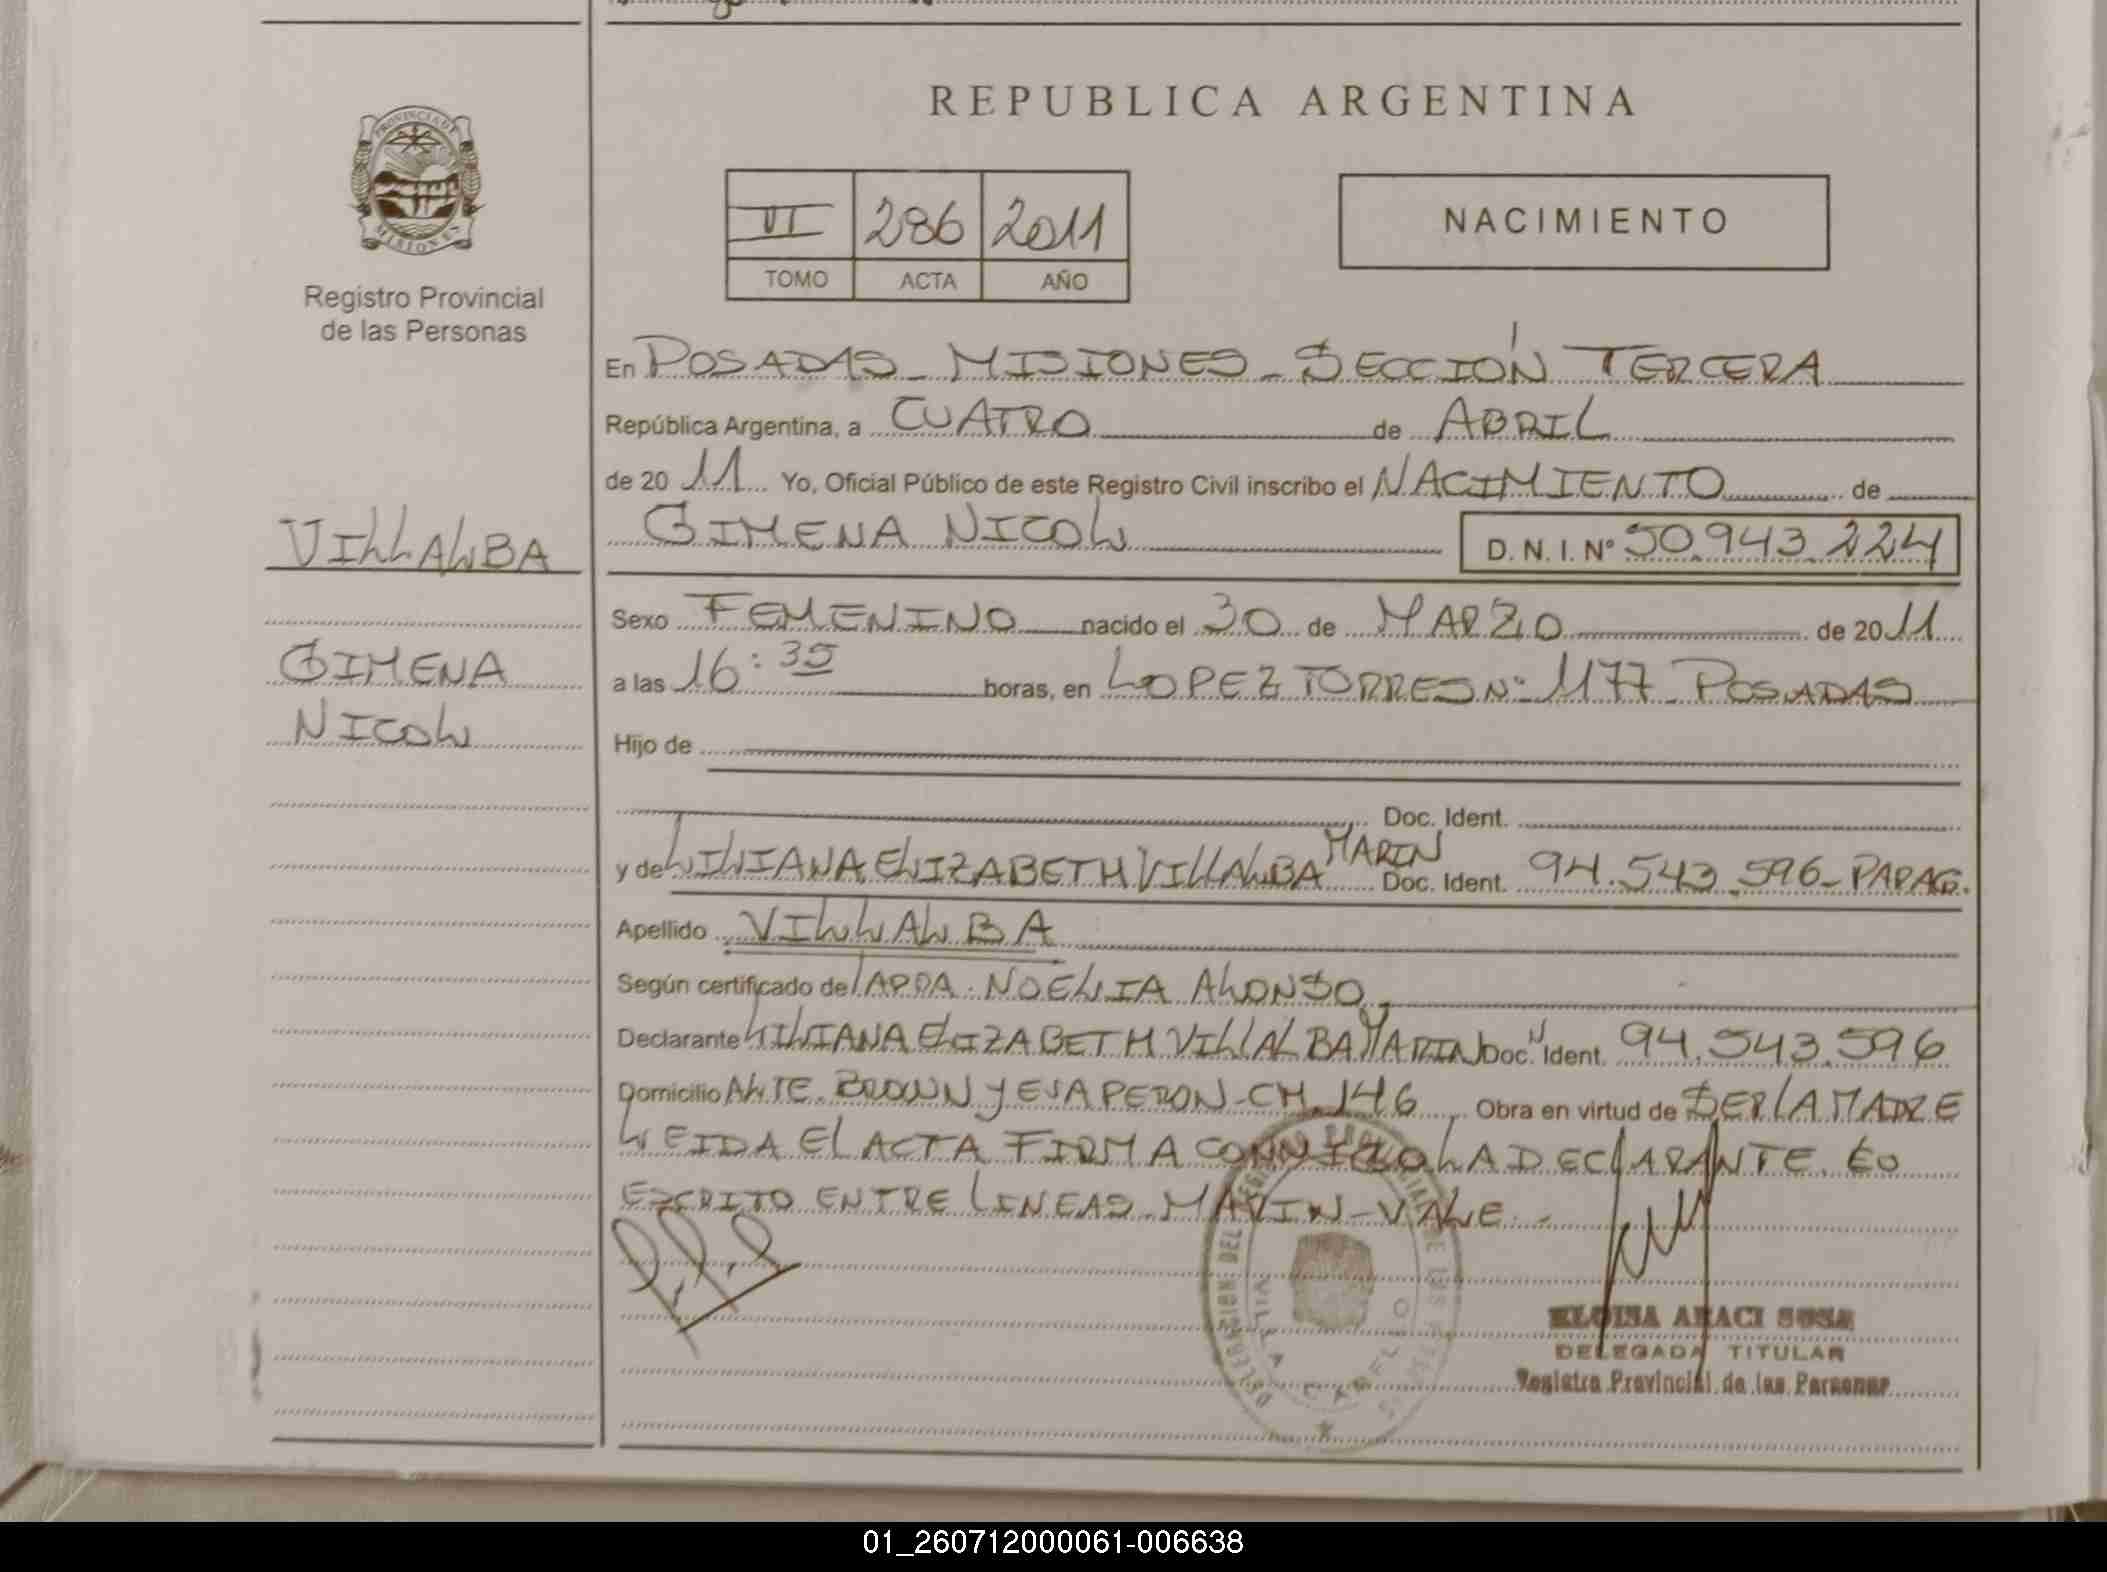 REPUBLICA ARGENTINA
PROVINCIA DE
MISIONES
Registro Provincial
de las Personas
VI 286 2011
TOMO ACTA AÑO
NACIMIENTO
En POSADAS - MISIONES - SECCIÓN TERCERA
República Argentina, a CUATRO de ABRIL
de 2011 Yo, Oficial Público de este Registro Civil inscribo el NACIMIENTO de
GIMENA NICOL D. N. I. Nº 50.943.224
VILLALBA
GIMENA
NICOL
Sexo FEMENINO nacido el 30 de MARZO de 2011
a las 16:35 horas, en LOPEZ TORRES Nº 1177 POSADAS
Hijo de
Doc. Ident.
MARIN
y de LILIANA ELIZABETH VILLALBA Doc. Ident. 94.543.596 - PARAG.
Apellido VILLALBA
Según certificado de NOELIA ALONSO
Declarante LILIANA ELIZABETH VILLALBA MARIN Doc. Ident. 94.543.596
Domicilio ALTE. BROWN Y EVA PERON - CH. 146 Obra en virtud de SER LA MADRE
LEIDA EL ACTA FIRMA LA DECLARANTE. Lo
ESCRITO ENTRE LINEAS - MARIN - VALE. -
ELOISA ARACI SOSA
DELEGADA TITULAR
Registro Provincial de las Personas
VILLA CABELLO
01_260712000061-006638